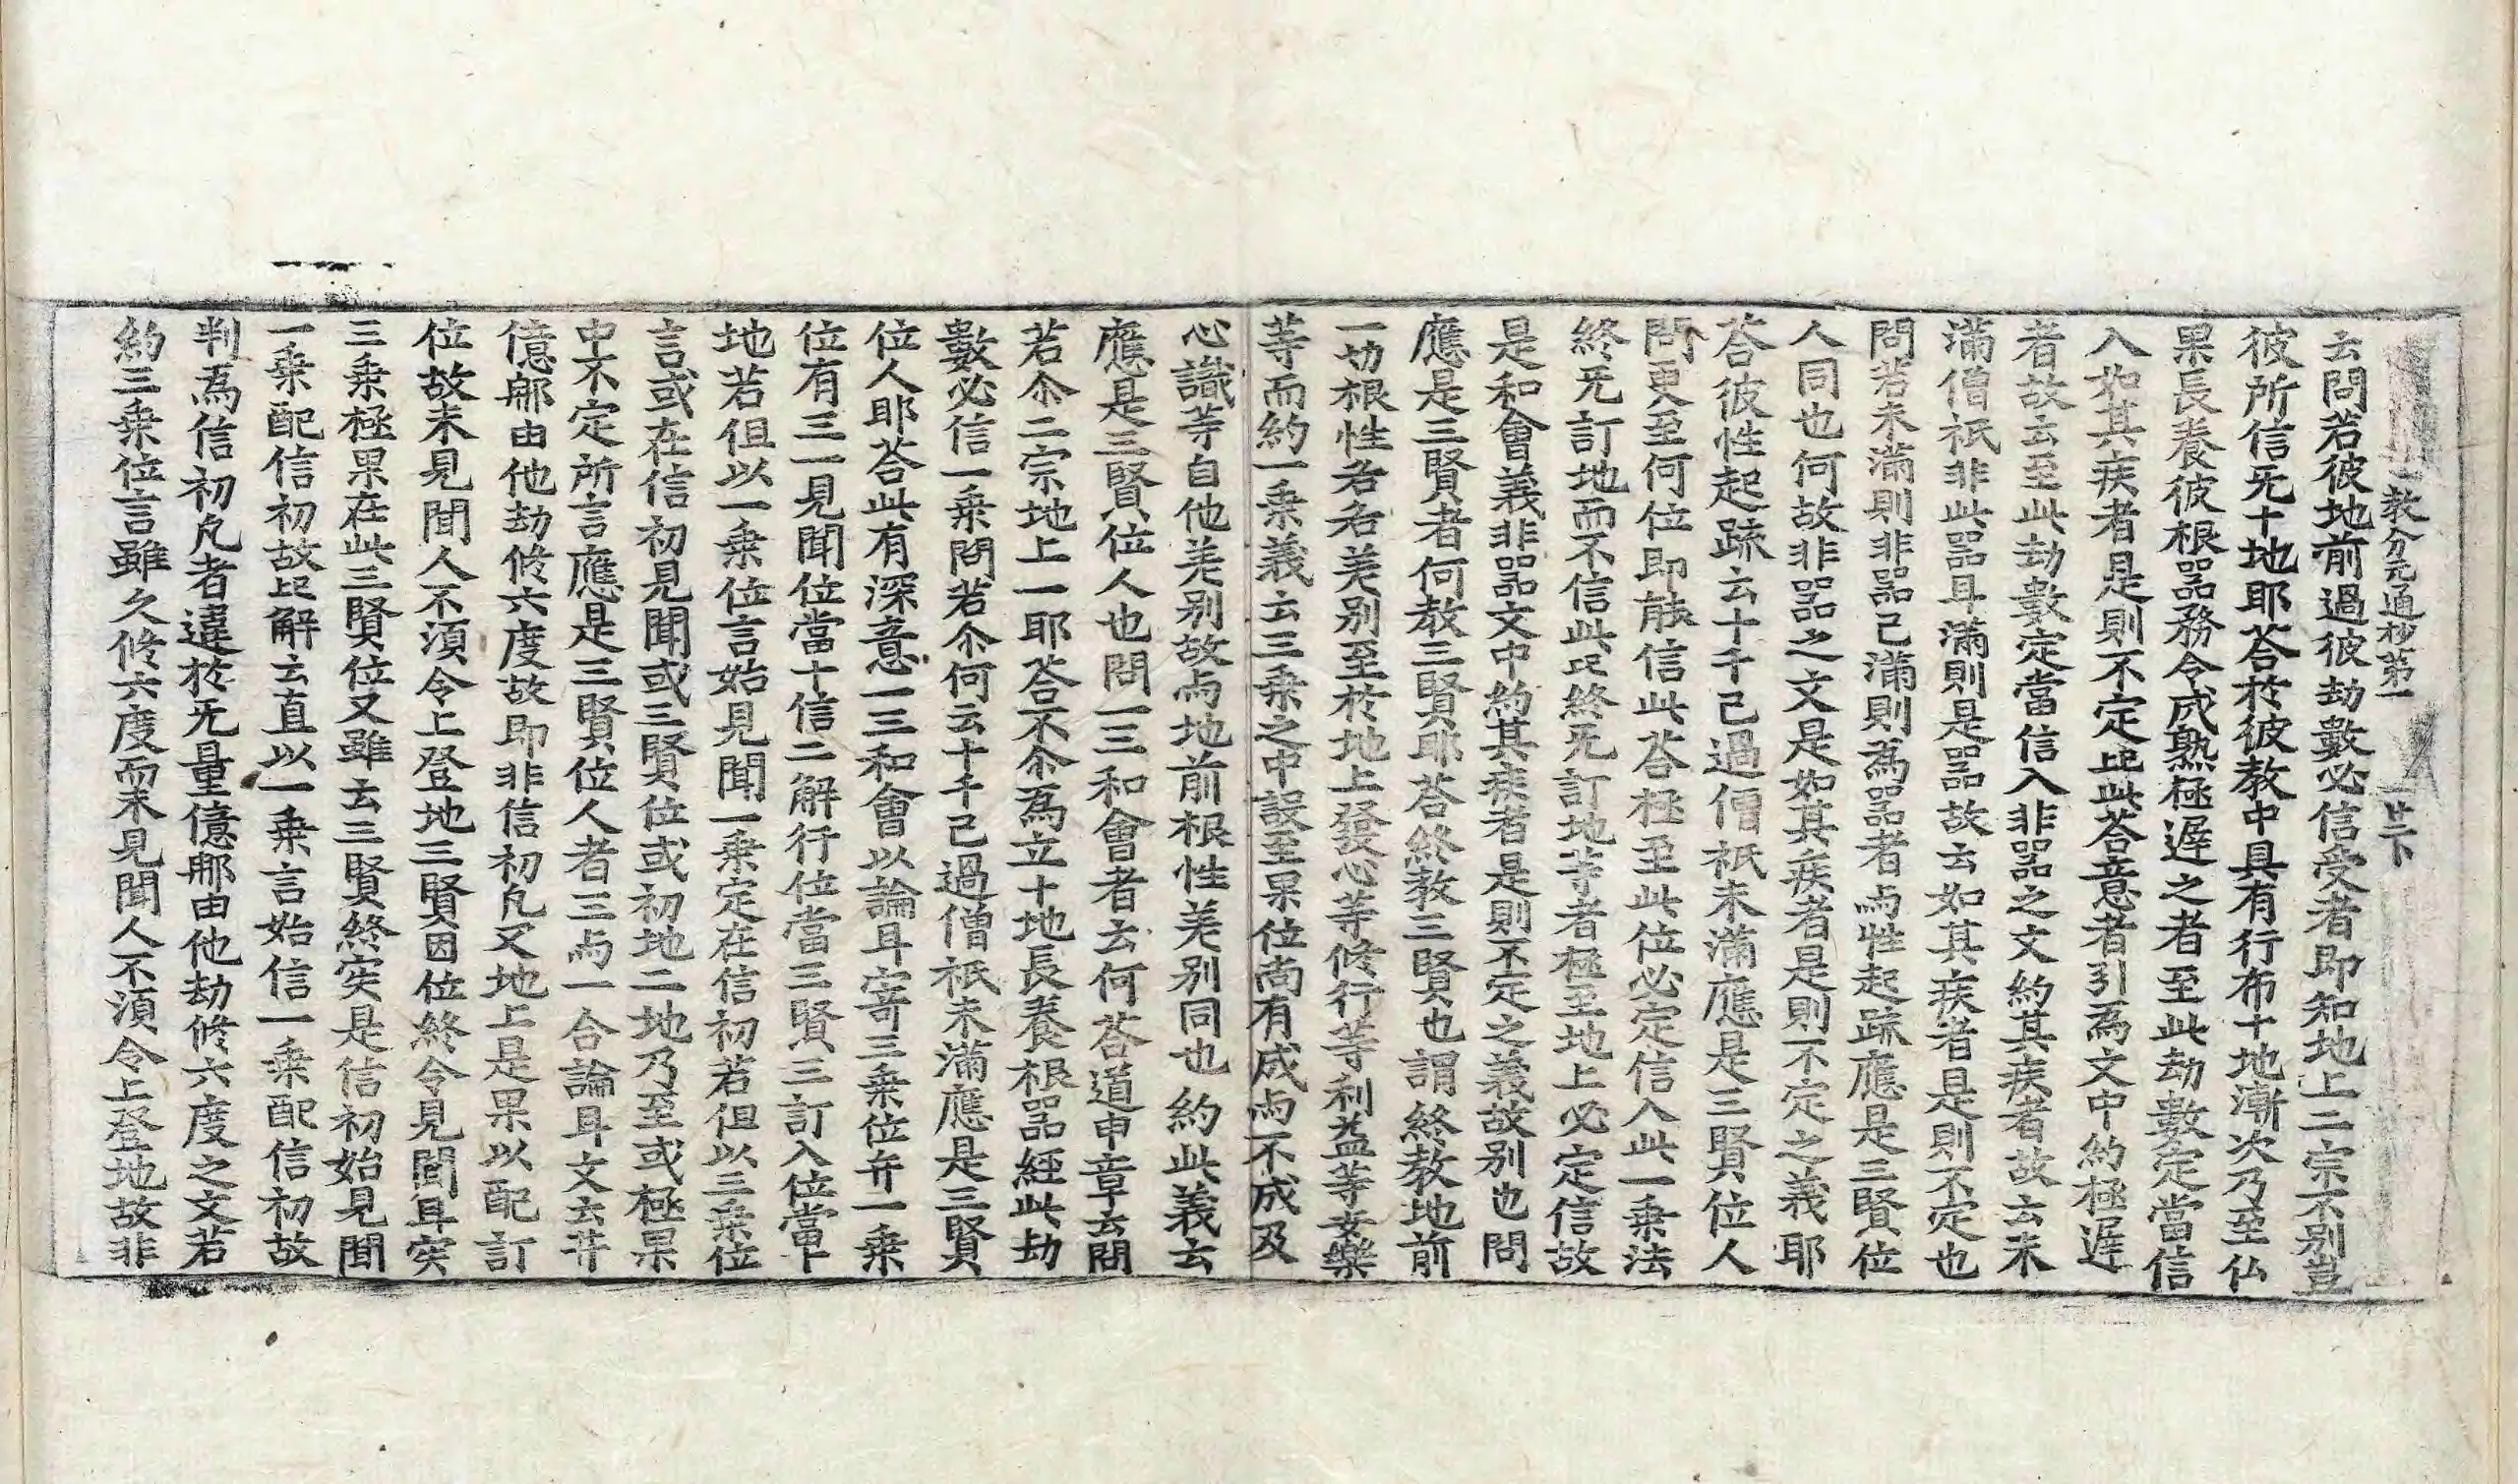 教分元通抄第一 廿二下
云問若彼地前過彼劫數必信受者即知地上二宗不別豈
彼所信旡十地耶荅於彼教中具有行布十地漸次乃至仏
果長養彼根器務令成熟極遲之者至此劫數定當信
入如其疾者是則不定此荅意者引為文中約極遲
者故云至此劫數定當信入非器之文約其疾者故云未
滿僧祇非此器耳滿則是器故云如其疾者是則不定也
問若未滿則非器已滿則為器者与性起疏應是三賢位
人同也何故非器之文是如其疾者是則不定之義耶
荅彼性起疏云十千已過僧祇未滿應是三賢位人
問更至何位即能信此荅極至此位必定信入此一乗法
終旡訂地而不信此此終旡訂地等者極至地上必定信故
是和會義非器文中約其疾者是則不定之義故别也問
應是三賢者何教三賢耶荅終教三賢也謂終教地前
一切根性各各差別至於地上發心等修行等利益等安樂
等而約一乗義云三乗之中設至果位尚有成与不成及
心識等自他差別故与地前根性差別同也約此義云
應是三賢位人也問一三和會者云何荅道申章云問
若尒二宗地上一耶荅不尒為立十地長養根器経此劫
數必信一乗問若尒何云十千已過僧祇未滿應是三賢
位人耶荅此有深意一三和會以論耳寄三乗位弁一乗
位有三一見聞位當十信二解行位當三賢三訂入位當十
地若但以一乗位言始見聞一乗定在信初若但以三乗位
言或在信初見聞或三賢位或初地二地乃至或極果
中不定所言應是三賢位人者三与一合論耳文云菩
億郍由他劫修六度故即非信初凡又地上是果以配訂
位故未見聞人不須令上登地三賢因位終令見聞耳実
三乗極果在此三賢位又雖云三賢終実是信初始見聞
一乗配信初故此解云直以一乗言始信一乗配信初故
判為信初凡者違於旡量億郍由他劫修六度之文若
約三乗位言雖久修六度而未見聞人不須令上登地故非